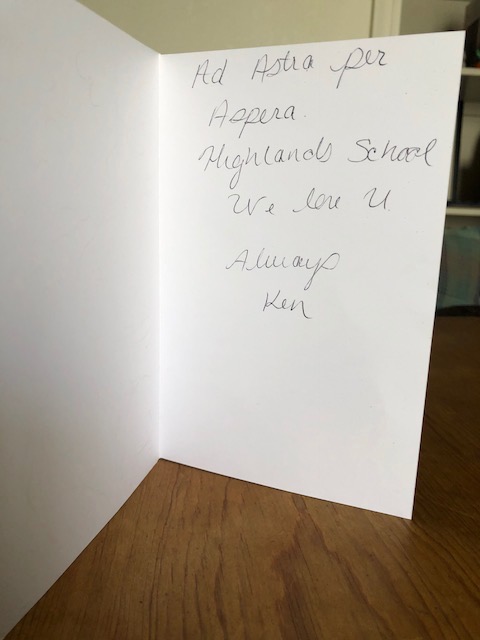 Ad Astra per
Aspera.
Highlands School
We love U
Always
Ken